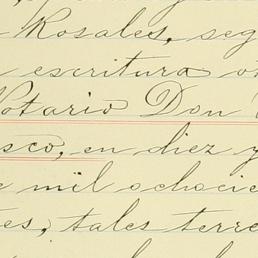 Rosales, seg
escritura o
Notario Don
sco, en diez y
mil ochocie
tes, tales terre